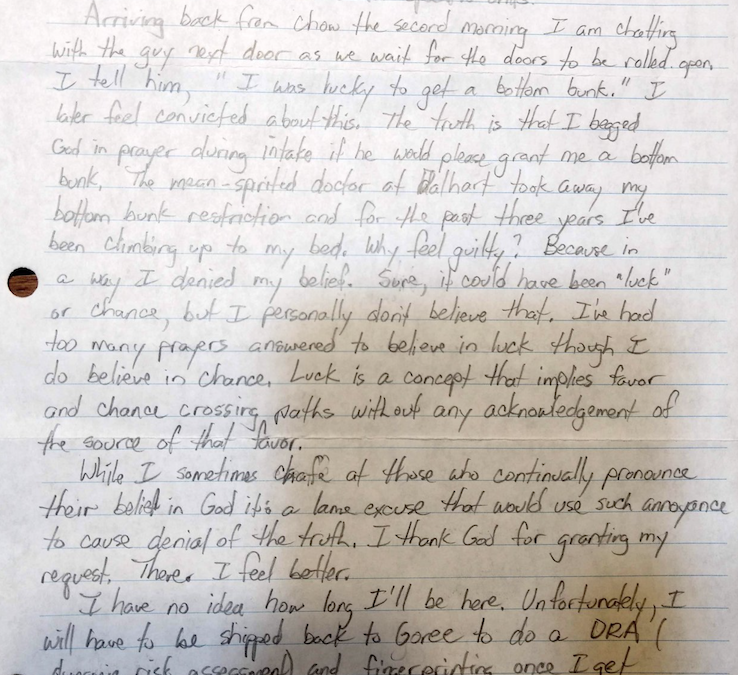 Arriving back from chow the second morning I am chatting
with the guy next door as we wait for the doors to be rolled open.
I tell him, "I was lucky to get a bottom bunk." I
later feel convicted about this. The truth is that I begged
God in prayer during intake if he would please grant me a bottom
bunk. The mean-sprited doctor at Dalhart took away my
bottom bunk restriction and for the past three years I've
been climbing up to my bed. Why feel guilty? Because in
a way I denied my belief. Sure, it could have been "luck"
or chance, but I personally don't believe that. I've had
too many prayers answered to believe in luck though I
do believe in chance. Luck is a concept that implies favor
and chance crossing paths without any acknowledgement of
the source of that favor.
While I sometimes chafe at those who continually pronounce
their belief in God it's a lame excuse that would use such annoyance
to cause denial of the truth. I thank God for granting my
request. There. I feel better.
I have no idea how long I'll be here. Unfortunately, I
will have to be shipped back to Goree to do a DRA (
risk assessment) and fingerprinting once I get